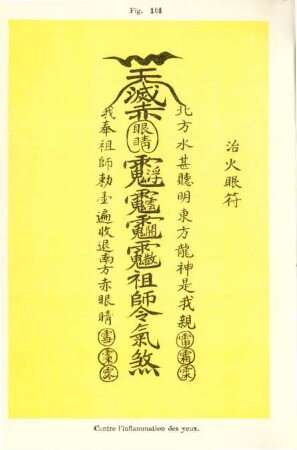 Fig. 161
治火眼符
北方水甚聽明東方龍神是我親雷霜
天滅赤眼睛祖師令氣煞
我奉祖師勅臺遍收退南方赤眼睛雪
Contre l'inflammation des yeux.